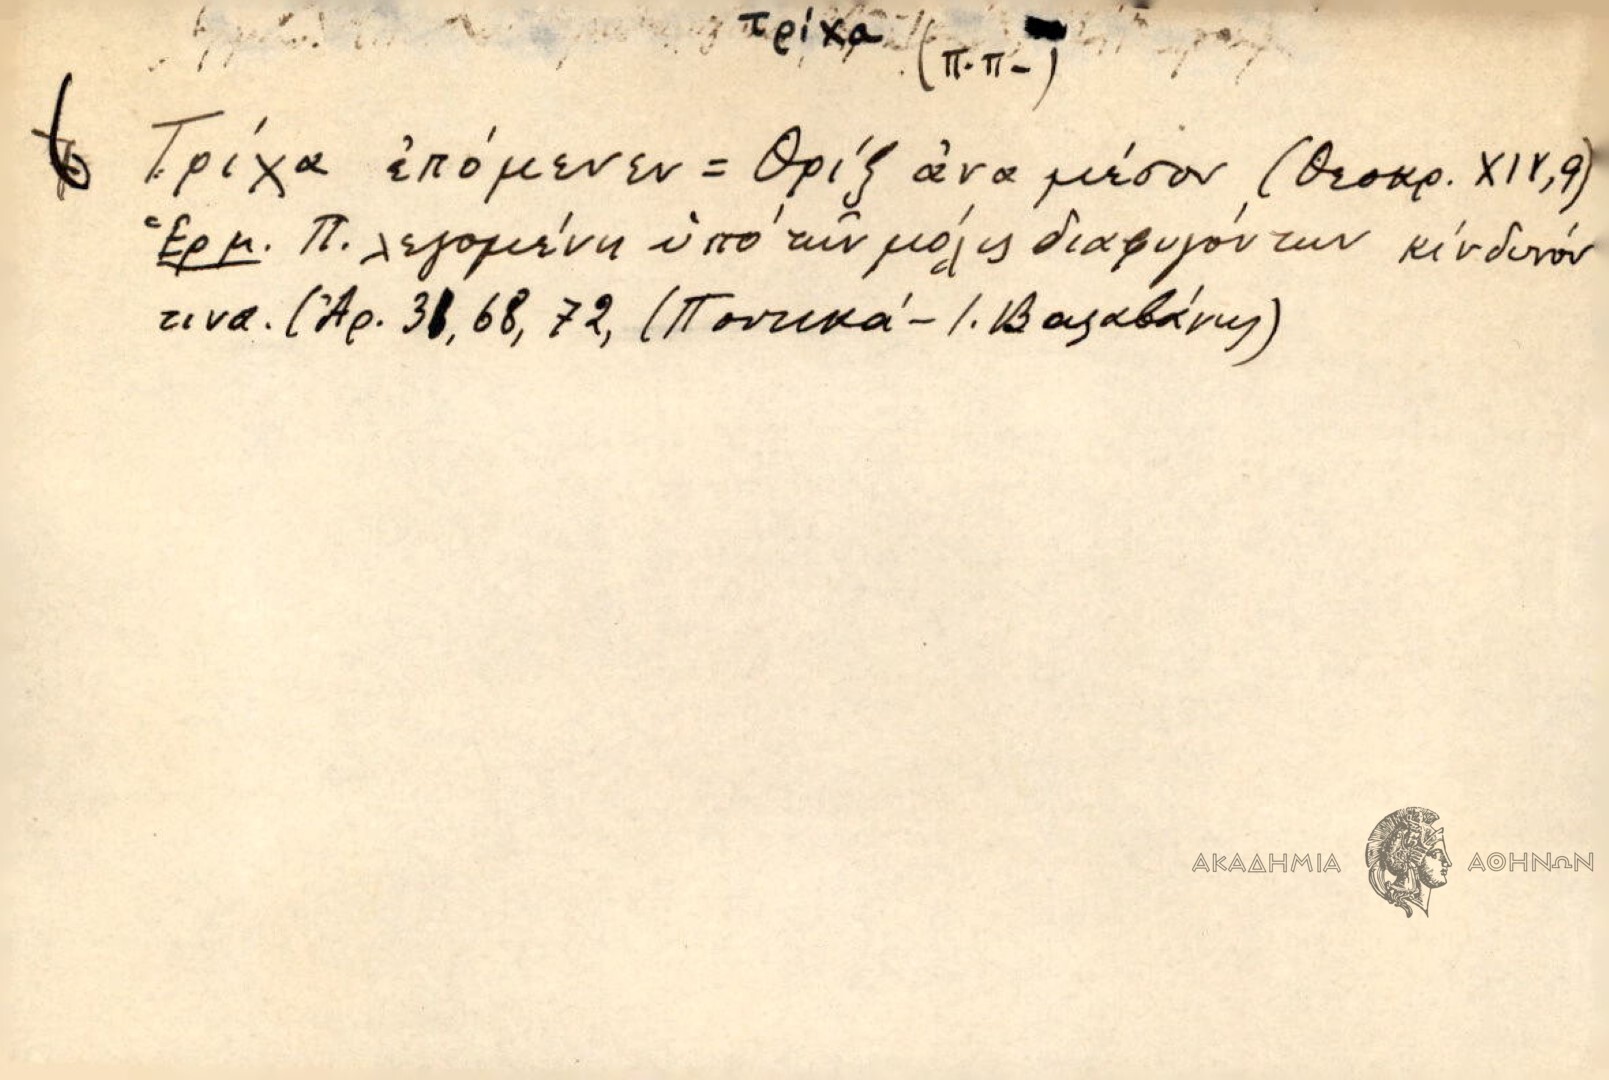 τρίχα
(π.π-)
Τρίχα ἐπόμενεν = Θρίξ ἀνα μέσον (Θεοκρ. XIV,9)
Ἑρμ. Π. λεγομένη ὑπό τῶν μόλις διαφυγόντων κίνδυνόν
τινα. (Ἀρ. 31, 68, 72, (Ποντικά - Ι. Βαλαβάνης)
ΑΚΑΔΗΜΙΑ ΑΘΗΝΩΝ